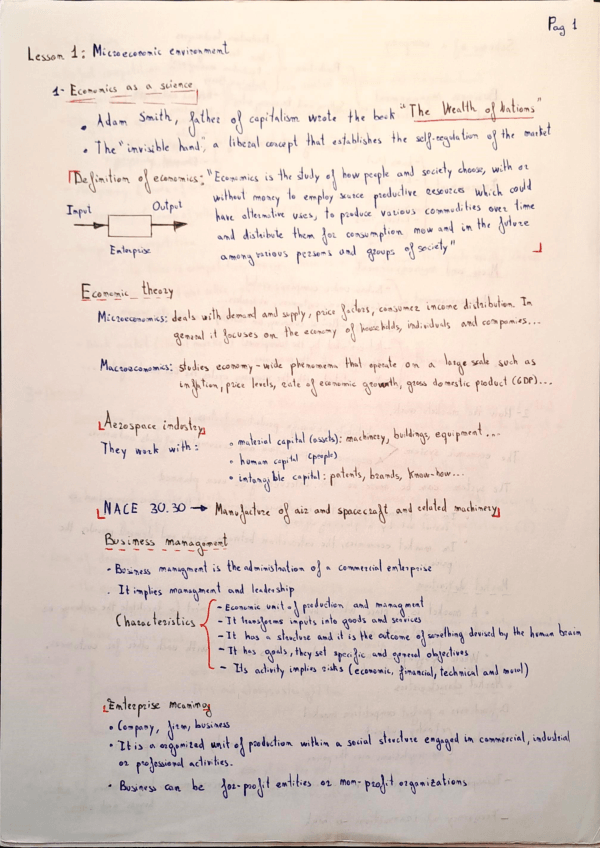 Pag 1
Lesson 1: Microeconomic environment
1- Economics as a science
• Adam Smith, father of capitalism wrote the book "The Wealth of Nations"
• The "invisible hand", a liberal concept that establishes the self-regulation of the market
Definition of economics: "Economics is the study of how people and society choose, with or
without money to employ scarce productive resources which could
have alternative uses, to produce various commodities over time
and distribute them for consumption now and in the future
among various persons and groups of society"
Input
Output
Enterprise
Economic theory
Microeconomics: deals with demand and supply, price factors, consumer income distribution. In
general it focuses on the economy of households, individuals and companies...
Macroeconomics: studies economy-wide phenomena that operate on a large scale such as
inflation, price levels, rate of economic growth, gross domestic product (GDP)...
Aerospace industry
They work with:
• material capital (assets): machinery, buildings, equipment...
• human capital (people)
• intangible capital: patents, brands, know-how...
NACE 30.30 → Manufacture of air and spacecraft and related machinery
Business management
• Business managment is the administration of a commercial enterprise
• It implies managment and leadership
Characteristics
- Economic unit of production and managment
- It transforms inputs into goods and services
- It has a structure and it is the outcome of something devised by the human brain
- It has goals, they set specific and general objectives
- Its activity implies risks (economic, financial, technical and moral)
Enterprise meaning
• Company, firm, business
• It is a organized unit of production within a social structure engaged in commercial, industrial
or professional activities.
• Business can be for-profit entities or non-profit organizations